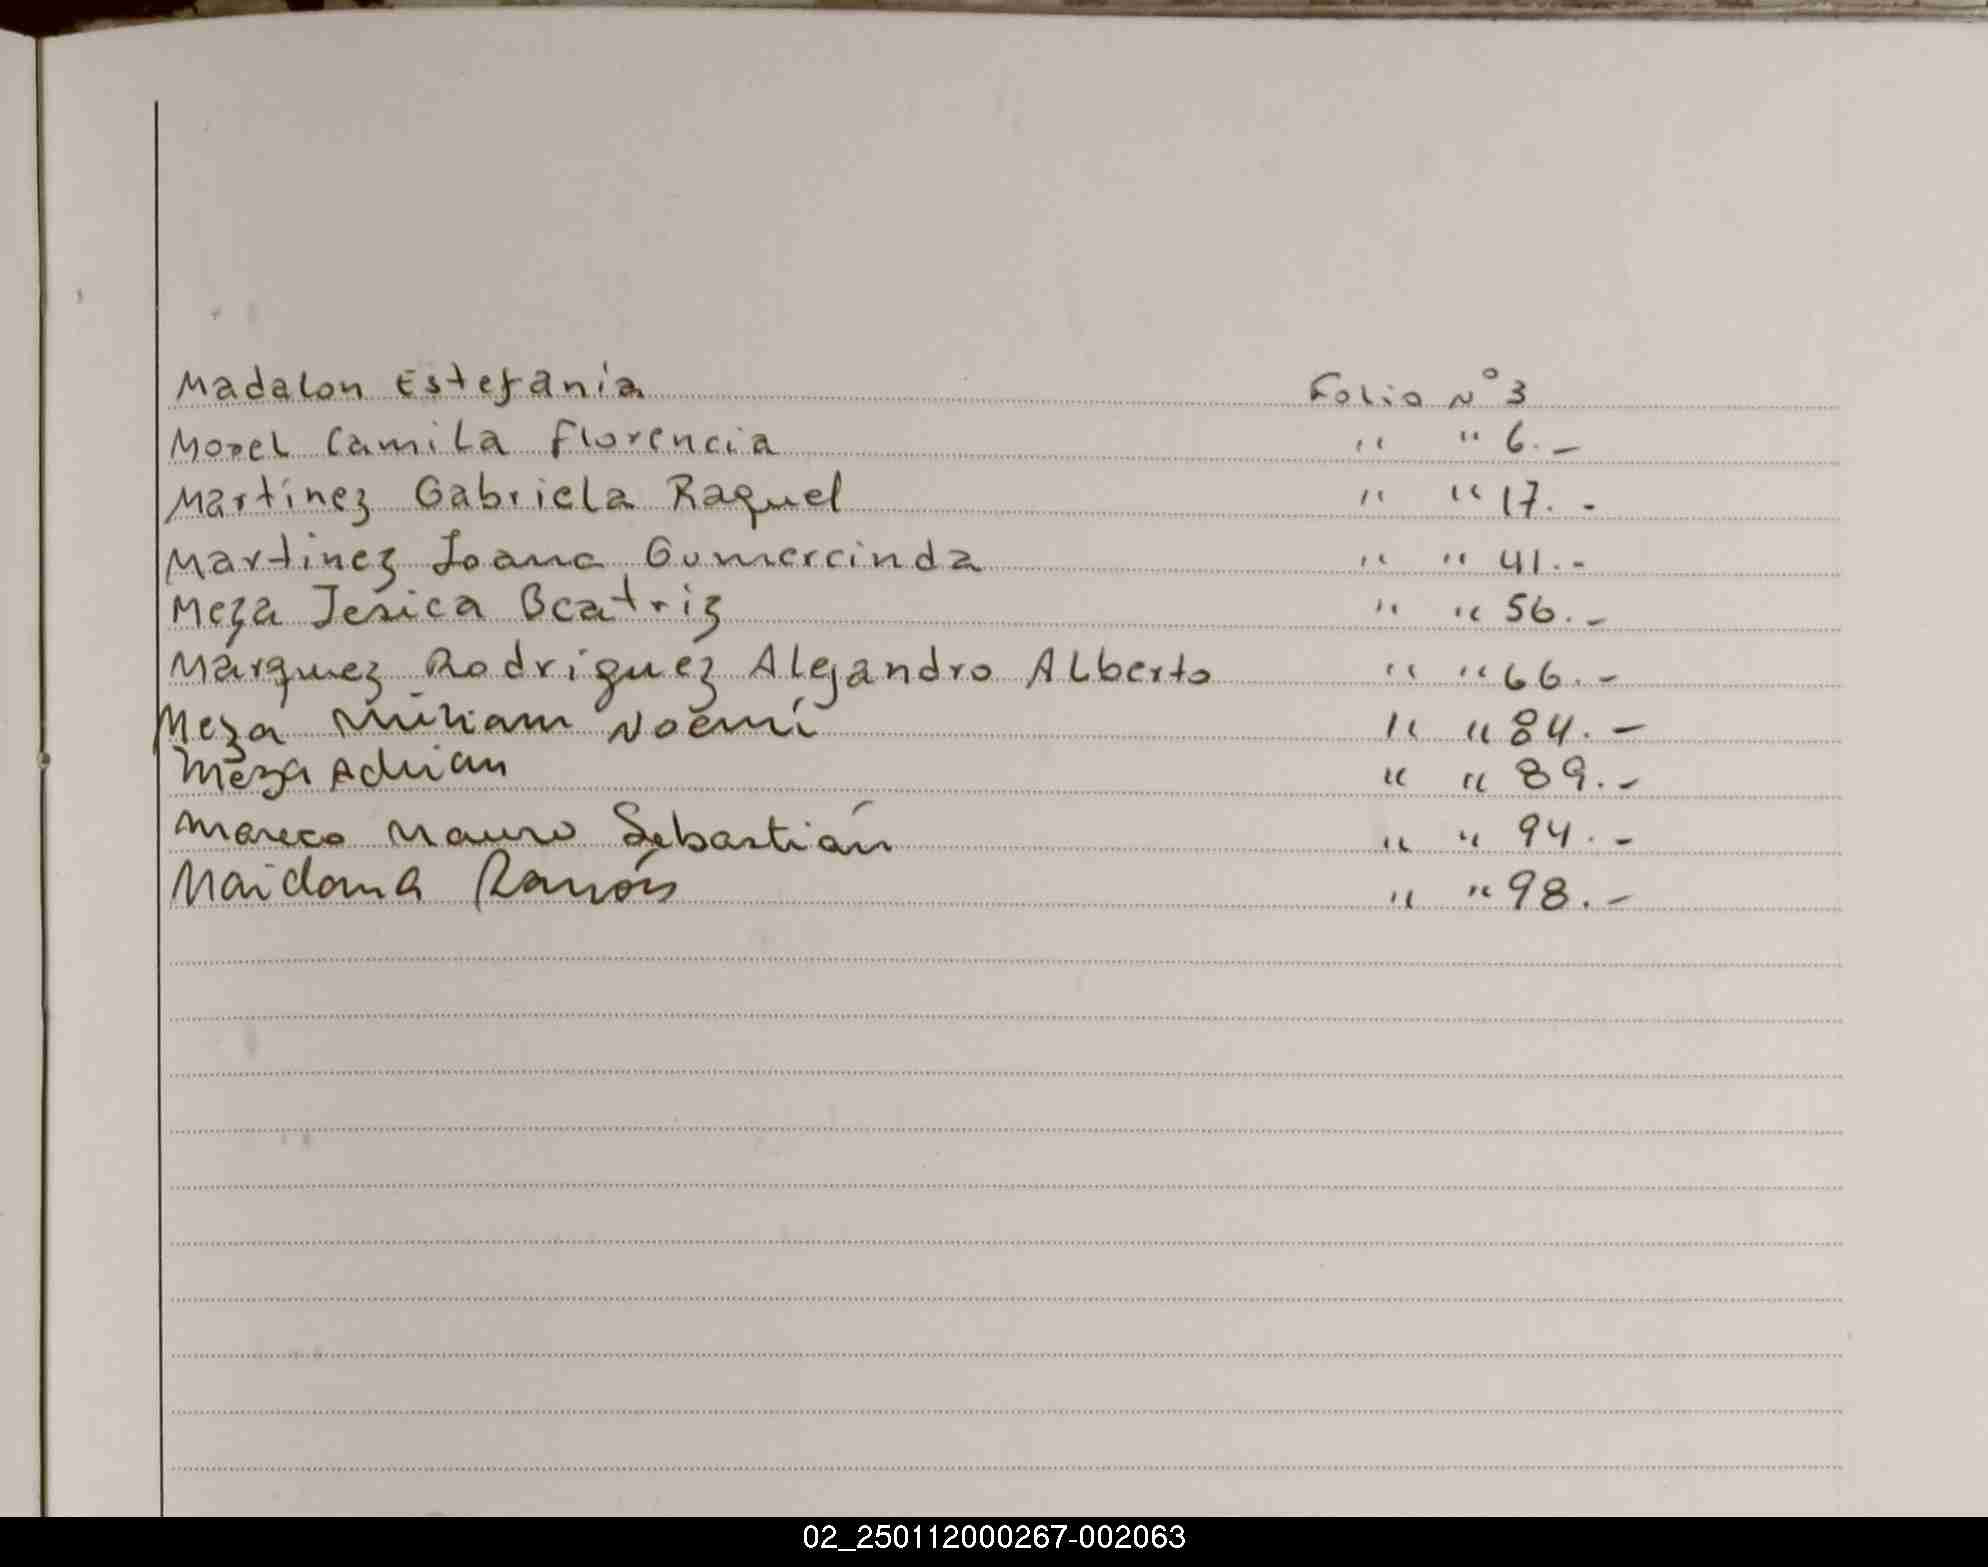 Madalon Estefanía Folio N° 3
Morel Camila Florencia " " 6.-
Martínez Gabriela Raquel " " 17.-
Martinez Ioana Gumercinda " " 41.-
Meza Jesica Beatriz " " 56.-
Márquez Rodriguez Alejandro Alberto " " 66.-
Meza Miriam Noemí " " 84.-
Meza Adrian " " 89.-
Mareco Mauro Sebastián " " 94.-
Maidana Ramón " " 98.-
02_250112000267-002063